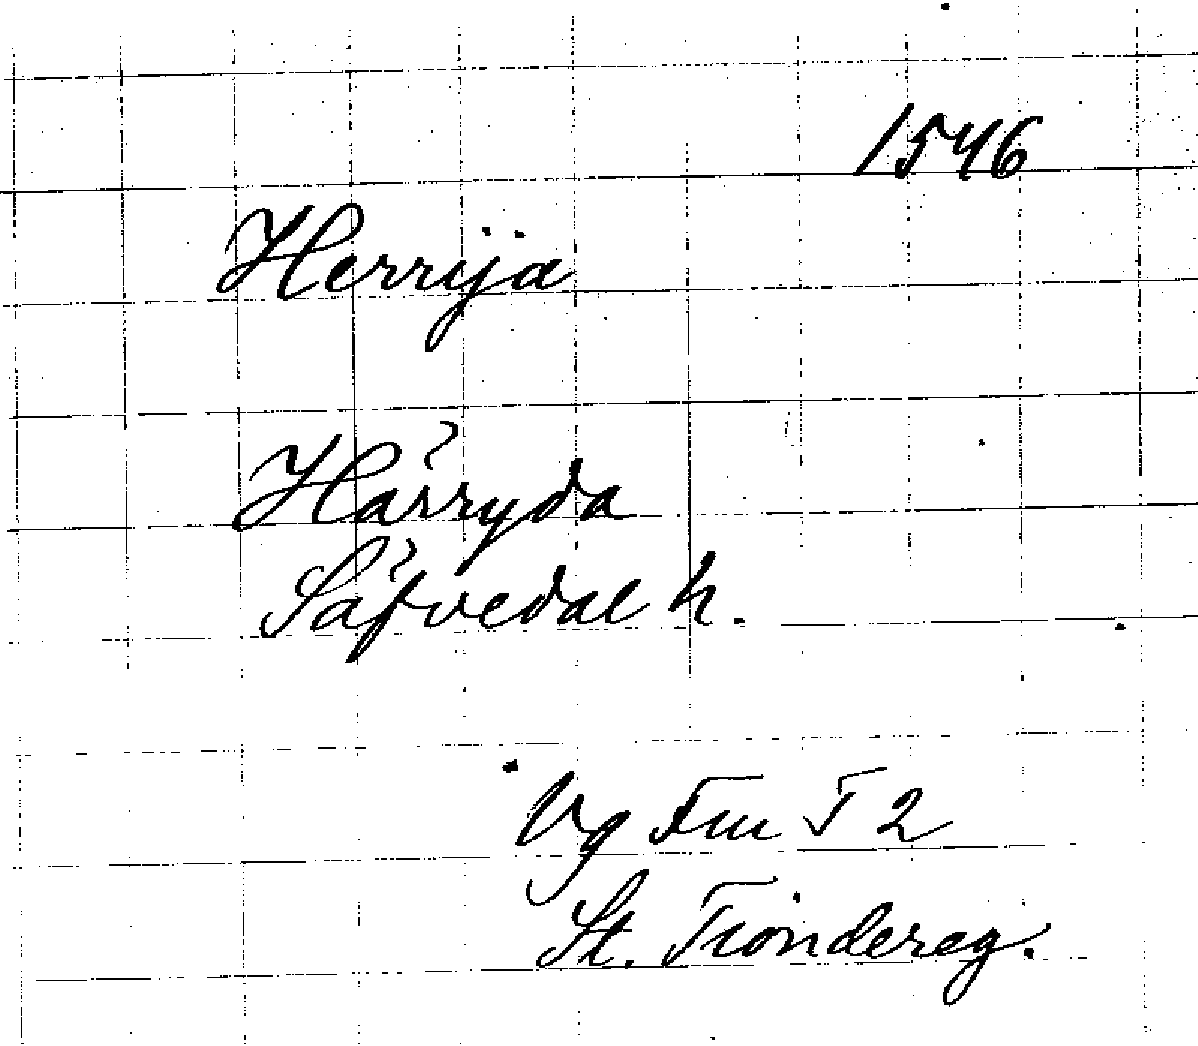 1546
Herrÿa
Härryda
Säfvedal h.
Vg T 2
St. Tiondereg.